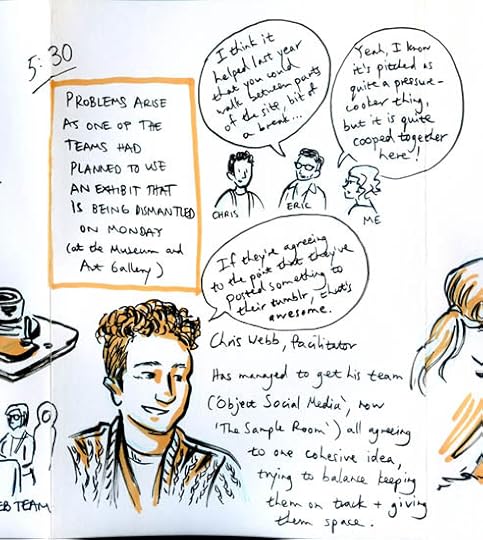 5:30
PROBLEMS ARISE
AS ONE OF THE
TEAMS HAD
PLANNED TO USE
AN EXHIBIT THAT
IS BEING DISMANTLED
ON MONDAY
(at the Museum and
Art Gallery)
I think it
helped last year
that you could
walk between parts
of the site, bit of
a break...
Yeah, I know
it's pitched as
quite a pressure-
cooker thing,
but it is quite
cooped together
here!
CHRIS
ERIC
ME
If they're agreeing
to the point that they've
posted something to
their tumblr, that's
awesome.
Chris Webb, facilitator
Has managed to get his team
('Object Social Media', now
'The Sample Room') all agreeing
to one cohesive idea,
trying to balance keeping
them on track + giving
them space.
EB TEAM